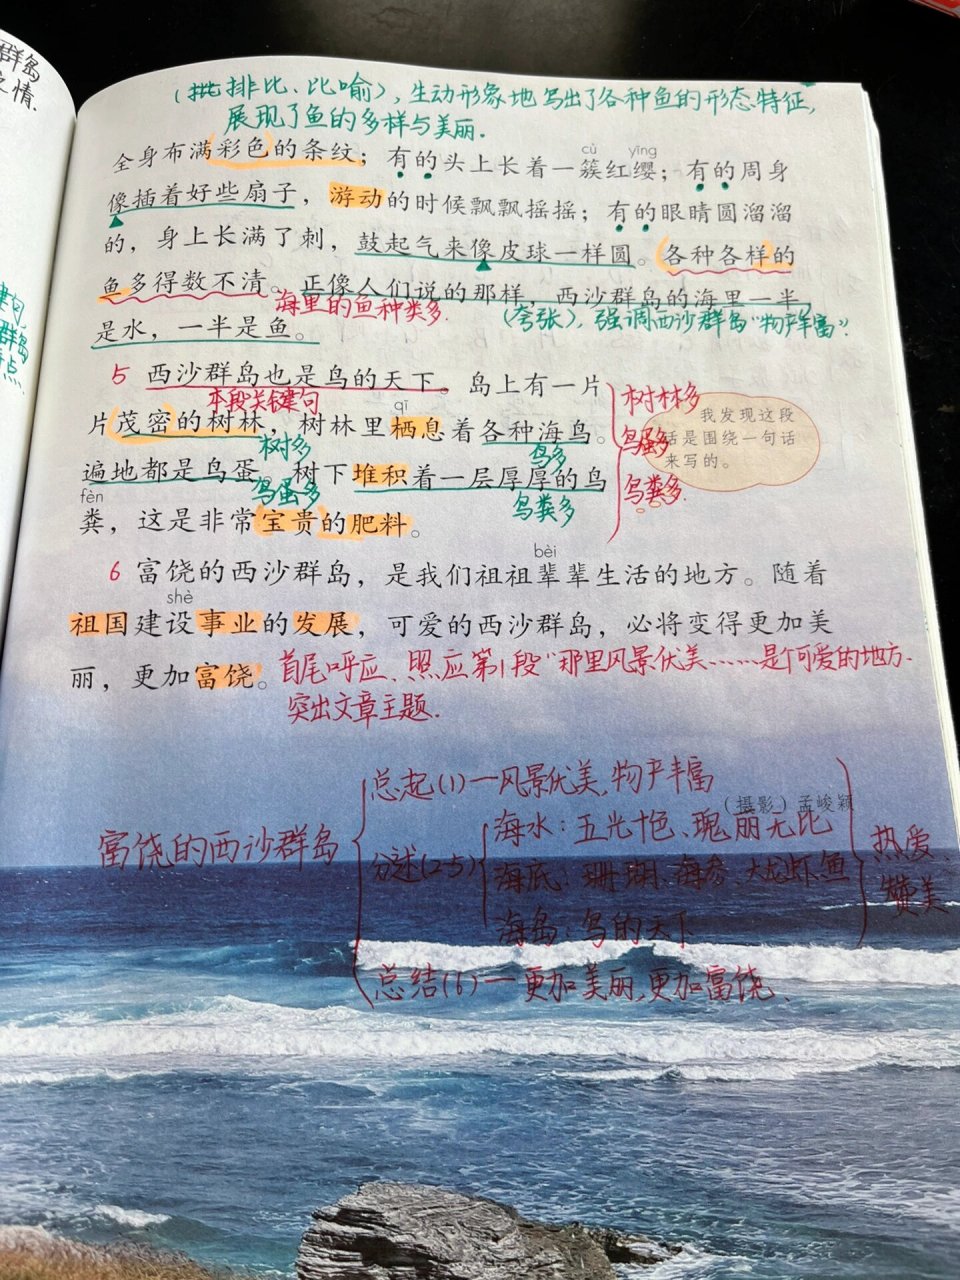 群岛
之情.
(排比、比喻), 生动形象地写出了各种鱼的形态特征,
展现了鱼的多样与美丽.
cù yīng
全身布满彩色的条纹；有的头上长着一簇红缨；有的周身
像插着好些扇子，游动的时候飘飘摇摇；有的眼睛圆溜溜
的，身上长满了刺，鼓起气来像皮球一样圆。各种各样的
鱼多得数不清。正像人们说的那样，西沙群岛的海里一半
海里的鱼种类多.
(夸张), 强调西沙群岛“物产丰富”.
是水，一半是鱼。
群岛
点.
5 西沙群岛也是鸟的天下。岛上有一片
本段关键句
qī
片茂密的树林，树林里栖息着各种海鸟。
树多
鸟多
遍地都是鸟蛋。树下堆积着一层厚厚的鸟
鸟蛋多
鸟粪多
fèn
粪，这是非常宝贵的肥料。
树林多
鸟蛋多
鸟粪多.
我发现这段
话是围绕一句话
来写的。
bèi
6 富饶的西沙群岛，是我们祖祖辈辈生活的地方。随着
shè
祖国建设事业的发展，可爱的西沙群岛，必将变得更加美
丽，更加富饶。
首尾呼应、照应第1段“那里风景优美……是个可爱的地方.
突出文章主题.
富饶的西沙群岛
总起(1)—风景优美、物产丰富
(摄影) 孟峻颖
分述(2-5)
海水：五光十色、瑰丽无比
海底：珊瑚、海参、大龙虾、鱼
海岛：鸟的天下
总结(6)—更加美丽,更加富饶、
热爱、
赞美